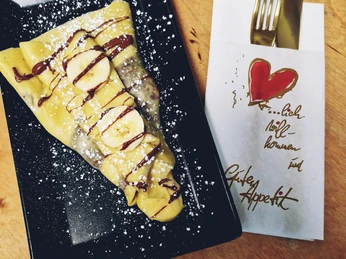 ...lich
Will-
kommen
und
Guten
Appetit